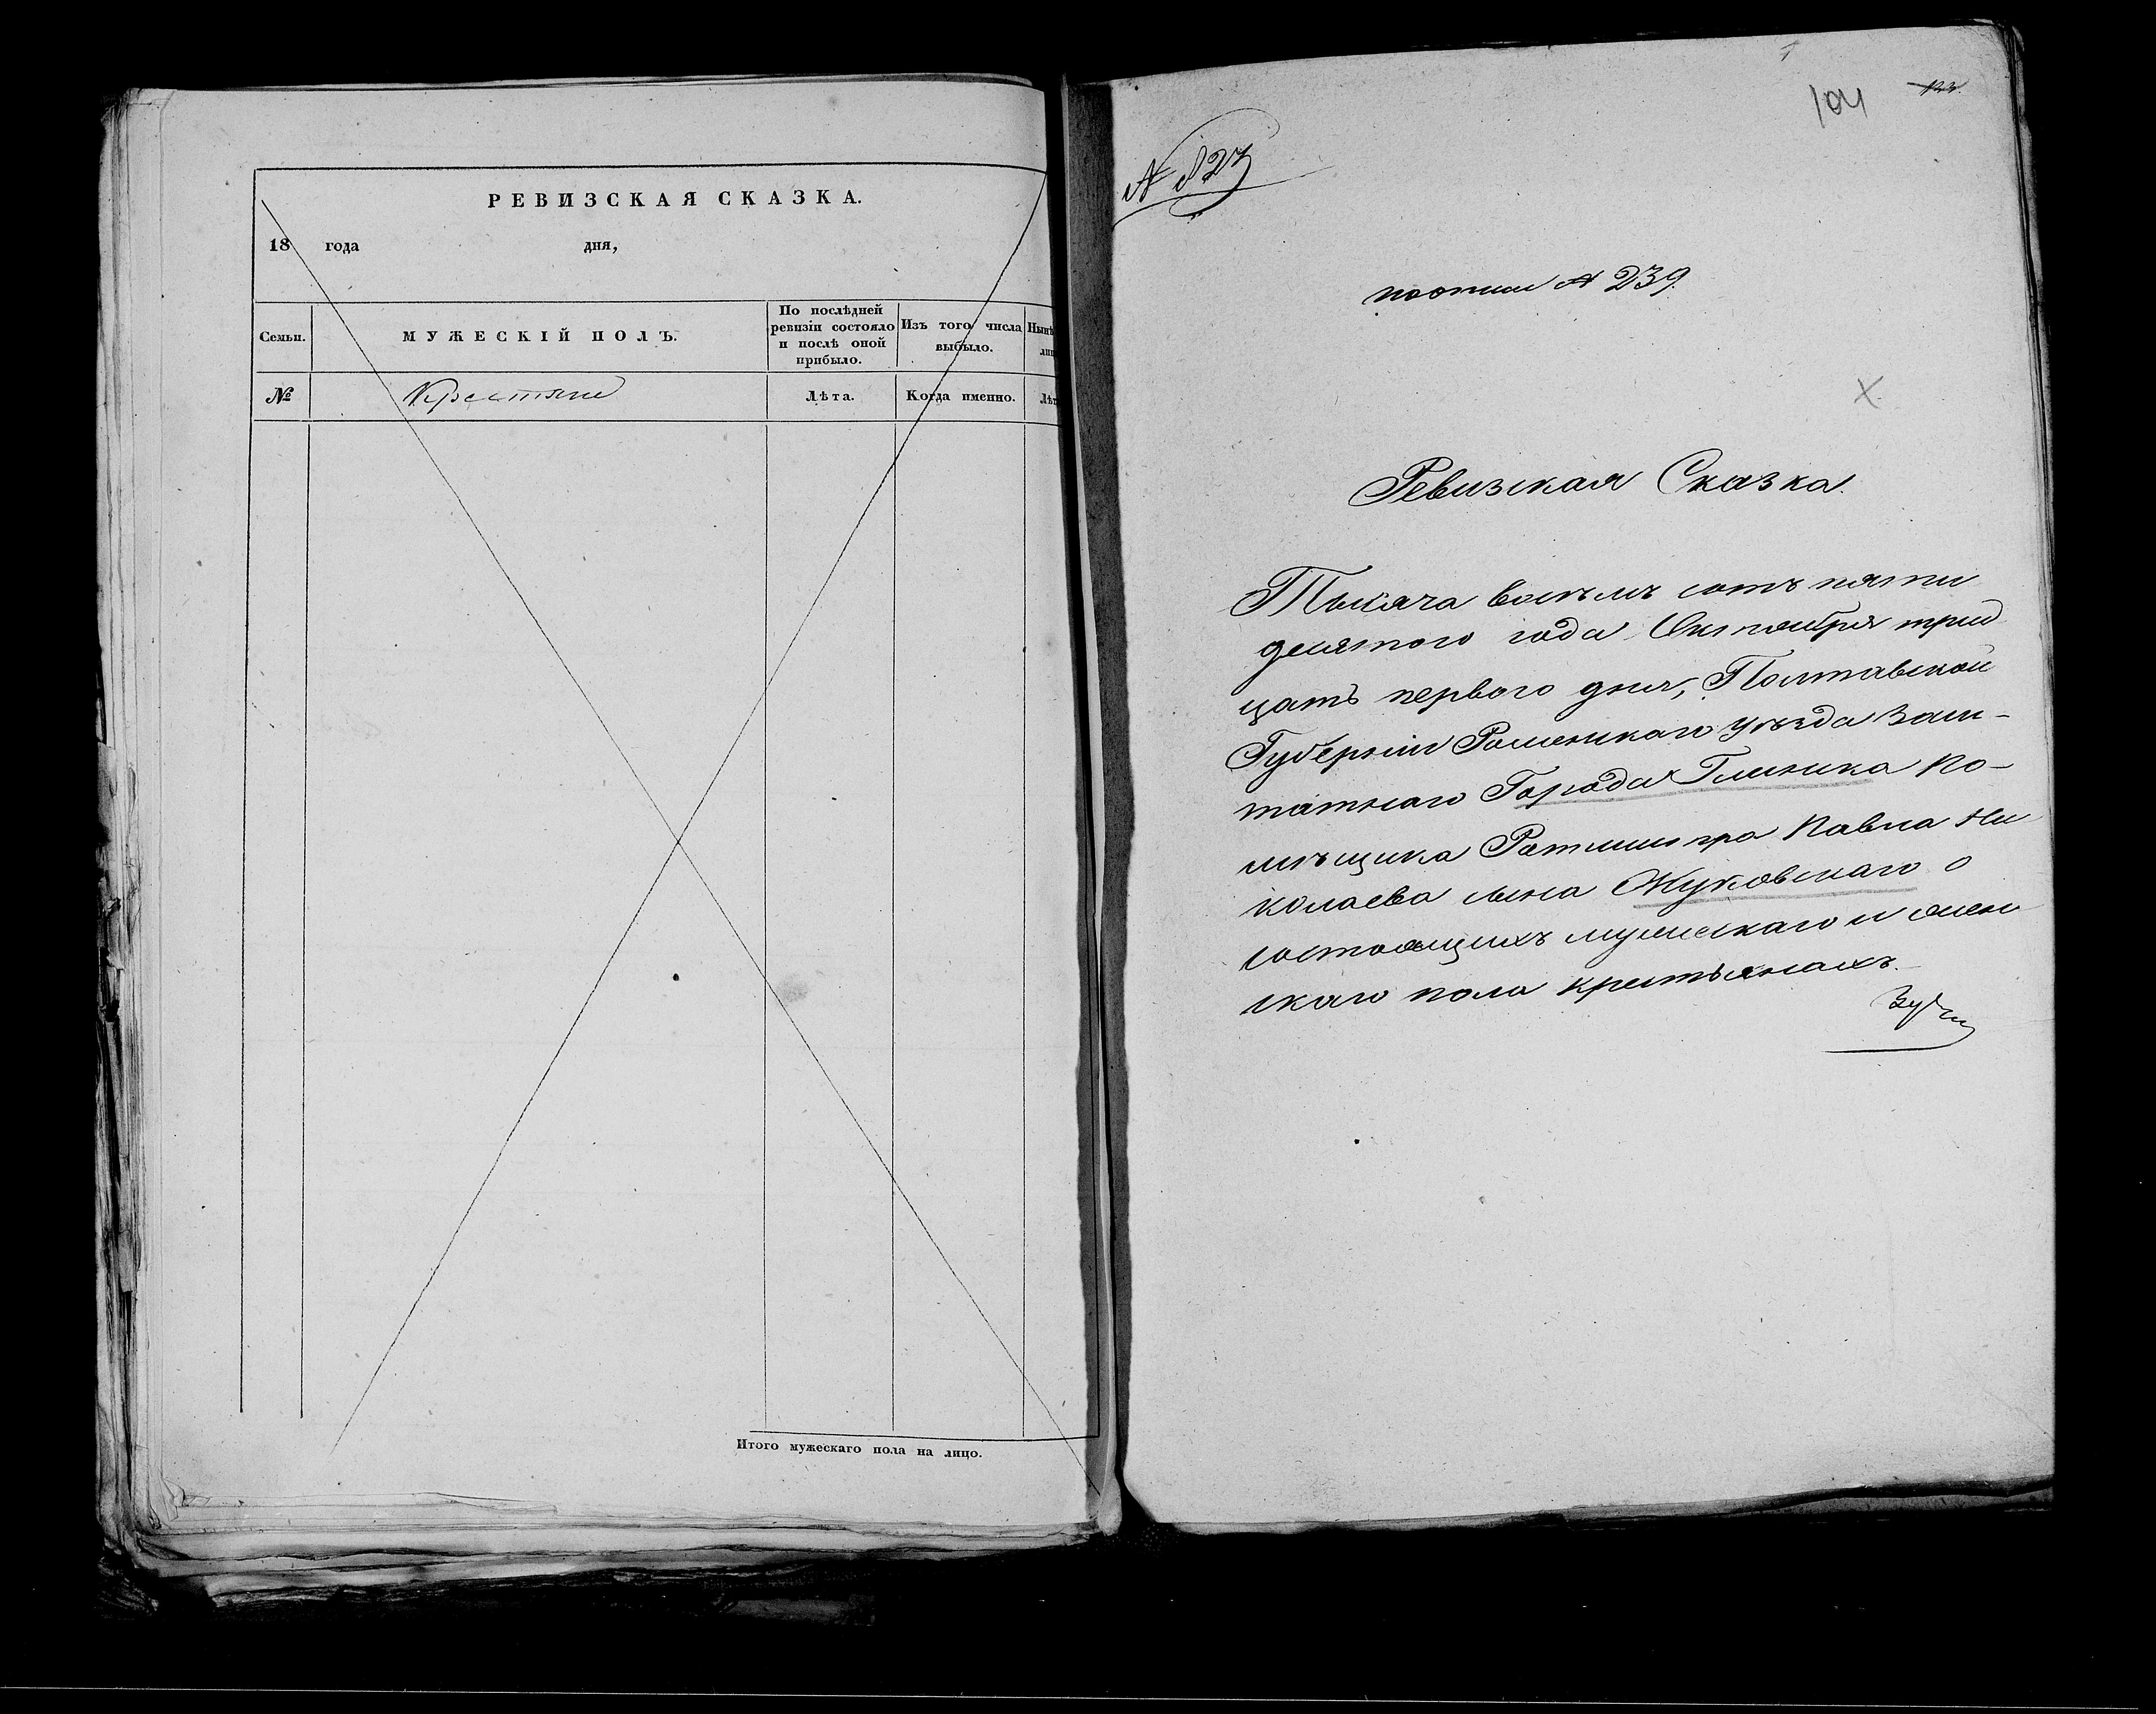 РЕВИЗСКАЯ СКАЗКА.
18 года дня,
Семьи.
МУЖЕСКІЙ ПОЛЪ.
По послѣдней
ревизіи состояло
и послѣ оной
прибыло.
Изъ того числа
выбыло.
№
Крестяне
Лѣта.
Когда именно.
Итого мужескаго пола на лицо.
104
123.
№ 823
по описи № 239.
Ревизская Сказка.
Тысяча восѣмъ сотъ пяти
десятого года Октоября трид
цать первого дня, Полтавской
Губерніи Роменскаго уѣзда Заш-
татнаго Города Глинска По-
мѣщика Ротмистра Павла Ни
колаева сына Жуковскаго о
состоящихъ мужескаго и женс
скаго пола крестьянахъ.